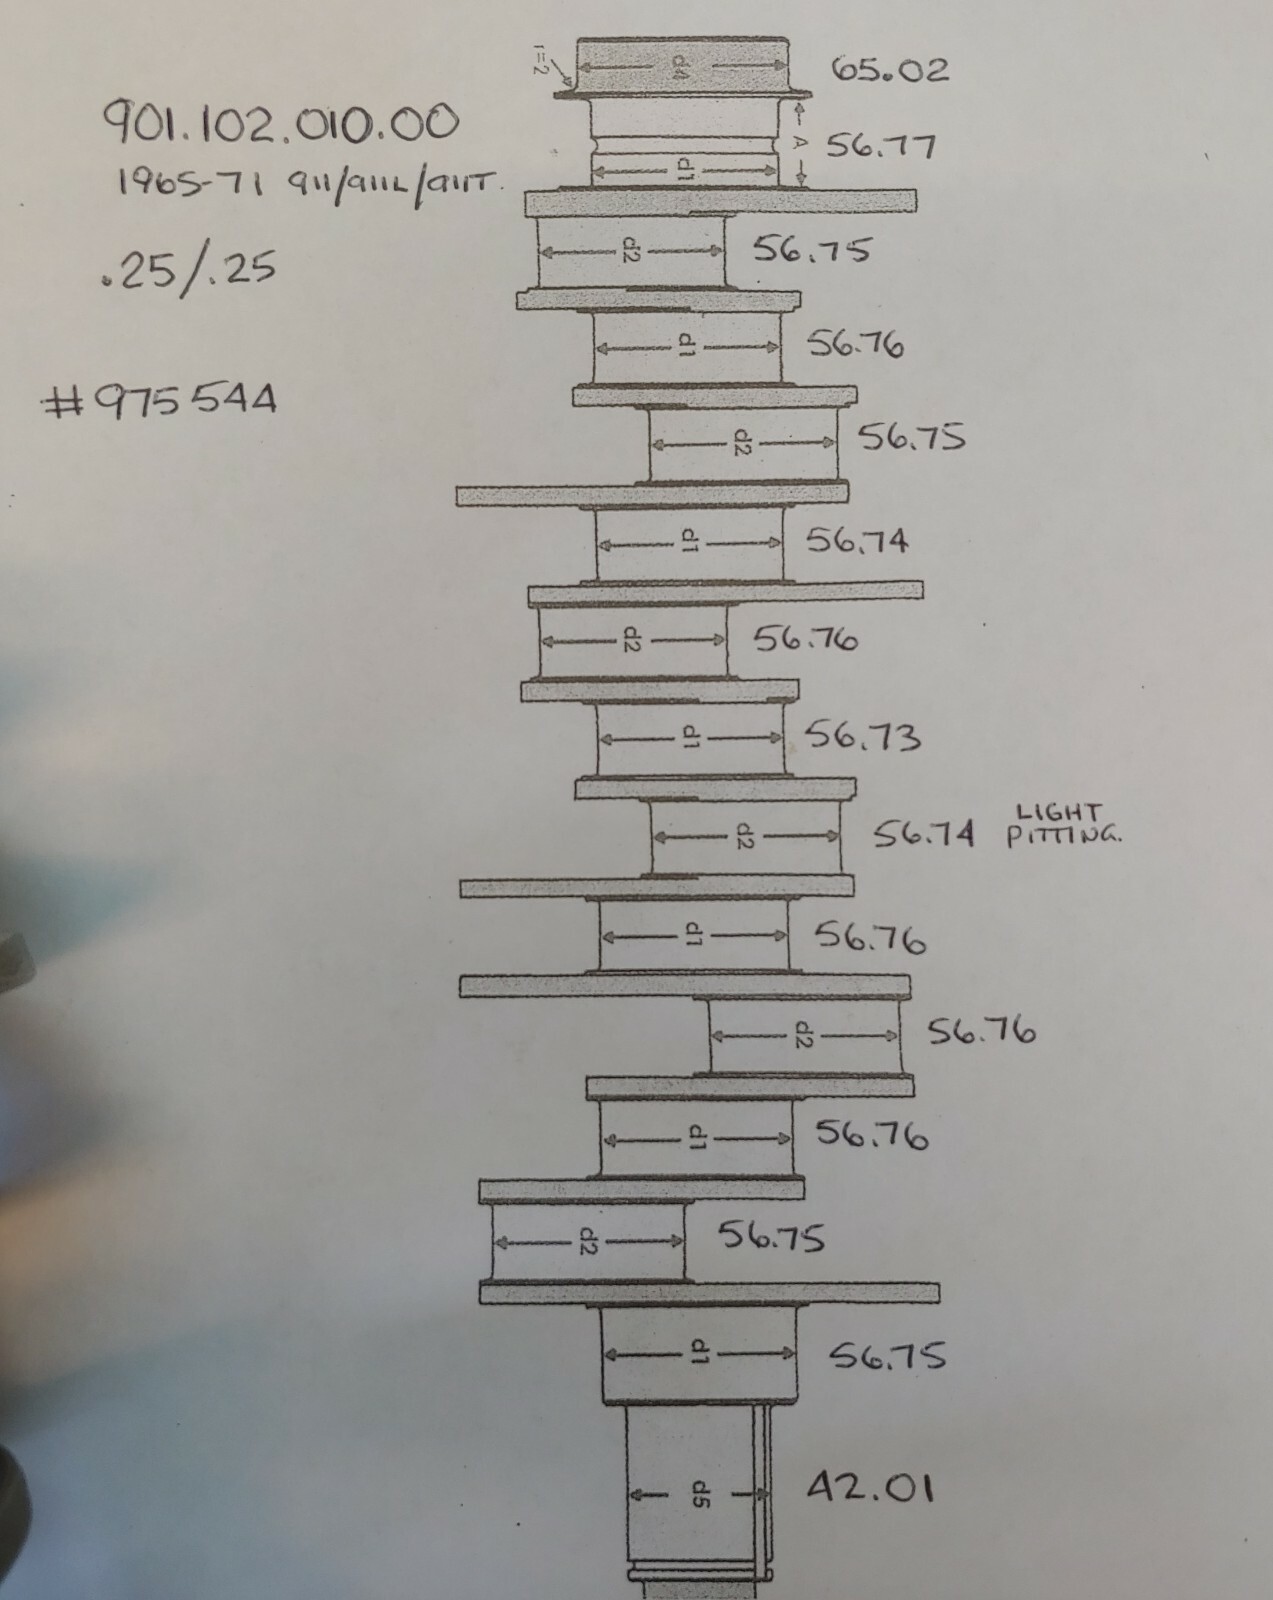 r=2
d4
65.02
901.102.010.00
1965-71 911/911L/911T.
A
56.77
d1
.25/.25
d2
56.75
d1
56.76
#975544
d2
56.75
d1
56.74
d2
56.76
d1
56.73
d2
56.74 LIGHT
PITTING.
d1
56.76
d2
56.76
d1
56.76
d2
56.75
d1
56.75
d5
42.01